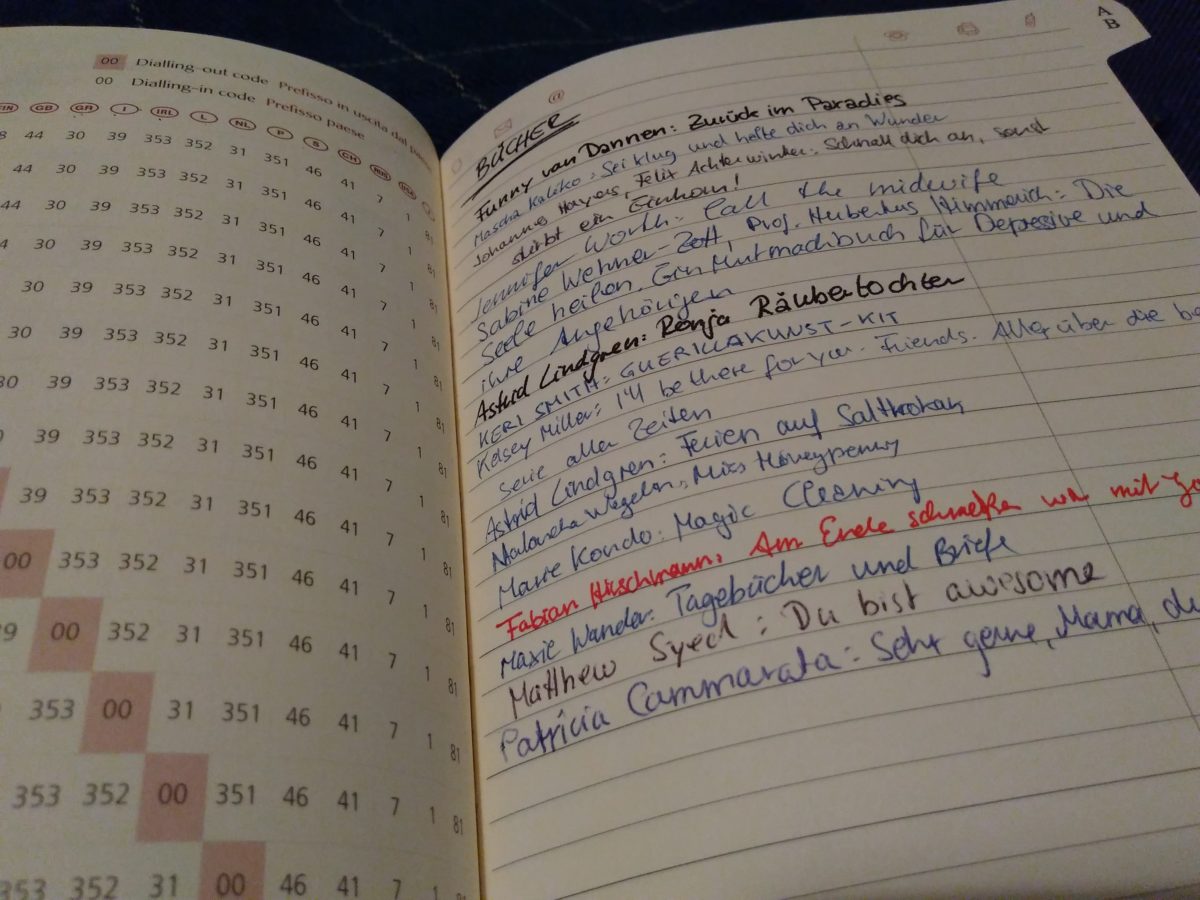 00 Dialling-out code Prefisso in uscita dal
00 Dialling-in code Prefisso paese
FIN GB GR I IRL L NL P S CH RUS USA J
44 30 39 353 352 31 351 46 41 7 1 81
44 30 39 353 352 31 351 46 41 7 1 81
44 30 39 353 352 31 351 46 41 7 1 81
30 39 353 352 31 351 46 41 7 1 81
30 39 353 352 31 351 46 41 7 1 81
30 39 353 352 31 351 46 41 7 1 81
39 353 352 31 351 46 41 7 1 81
39 353 352 31 351 46 41 7 1 81
39 353 352 31 351 46 41 7 1 81
00 353 352 31 351 46 41 7 1 81
00 352 31 351 46 41 7 1 81
353 00 31 351 46 41 7 1 81
353 352 00 351 46 41 7 1 81
353 352 31 00 46 41 7 1 81
A
B
@
BÜCHER
Funny van Dannen: Zurück im Paradies
Mascha Kaléko: Sei klug und halte dich an Wunder
Johannes Hayers, Felix Achterwinter: Schnall dich an, sonst
stirbt ein Einhorn!
Jennifer Worth: Call the midwife
Sabine Wehner-Zott, Prof. Hubertus Himmerich: Die
Seele heilen. Ein Mutmachbuch für Depressive und
ihre Angehörigen
Astrid Lindgren: Ronja Räubertochter
KERI SMITH: GUERILLAKUNST-KIT
Kelsey Miller: I'll be there for you. Friends. Alles über die
Serie aller Zeiten
Astrid Lindgren: Ferien auf Saltkrokan
Miss Moneypenny
Marie Kondo: Magic Cleaning
Fabian Hischmann: Am Ende schmeißen wir mit
Maxie Wander: Tagebücher und Briefe
Matthew Syed: Du bist awesome
Patricia Cammarata: Sehr gerne, Mama, du